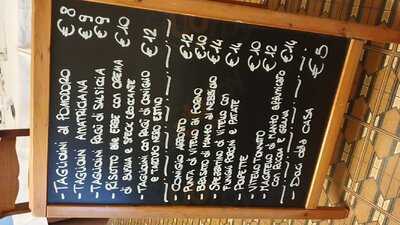 - TAGLIOLINI AL POMODORO € 8
- TAGLIOLINI AMATRICIANA € 9
- TAGLIOLINI RAGÙ DI SALSICCIA € 9
- RISOTTO ALLE ERBE CON CREMA € 10
DI BUFALA E SPECK CROCCANTE
- TAGLIOLINI CON RAGÙ DI CONIGLIO € 12
E TARTUFO NERO ESTIVO
- CONIGLIO ARROSTO € 12
- PUNTA DI VITELLO AL FORNO € 10
- BRASATO DI MANZO AL NEBBIOLO € 14
- SPEZZATINO DI VITELLO CON € 14
FUNGHI PORCINI E PATATE
- POLPETTE € 10
- VITELLO TONNATO € 12
- TAGLIATA DI MANZO
CON RUCOLA E GRANA € 14
- DOLCI DELLA CASA € 5